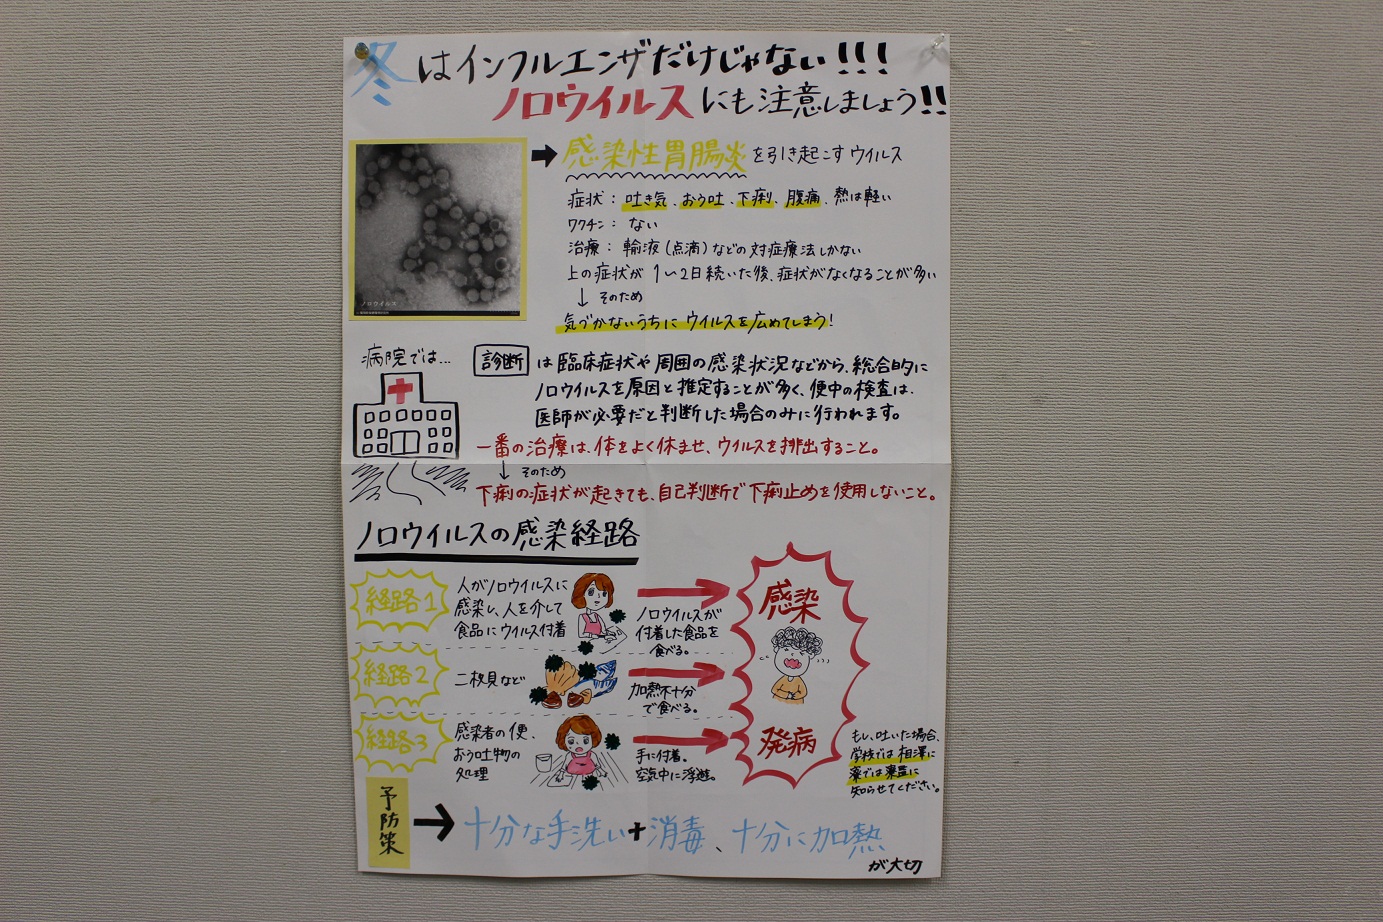 冬はインフルエンザだけじゃない!!!
ノロウイルスにも注意しましょう!!
ノロウイルス
➡ 感染性胃腸炎を引き起こすウイルス
症状：吐き気、おう吐、下痢、腹痛、熱は軽い
ワクチン：ない
治療：輸液(点滴)などの対症療法しかない
上の症状が1〜2日続いた後、症状がなくなることが多い
↓そのため
気づかないうちにウイルスを広めてしまう!
病院では...
診断は臨床症状や周囲の感染状況などから、総合的に
ノロウイルスを原因と推定することが多く、便中の検査は、
医師が必要だと判断した場合のみに行われます。
一番の治療は、体をよく休ませ、ウイルスを排出すること。
↓そのため
下痢の症状が起きても、自己判断で下痢止めを使用しないこと。
ノロウイルスの感染経路
経路1
人がノロウイルスに
感染し、人を介して
食品にウイルス付着
ノロウイルスが
付着した食品を
食べる。
経路2
二枚貝など
加熱不十分
で食べる。
経路3
感染者の便、
おう吐物の
処理
手に付着。
空気中に浮遊。
感染
発病
もし、吐いた場合、
学校では相澤に
寮では
知らせてください。
予防策
➡ 十分な手洗い+消毒、十分に加熱
が大切